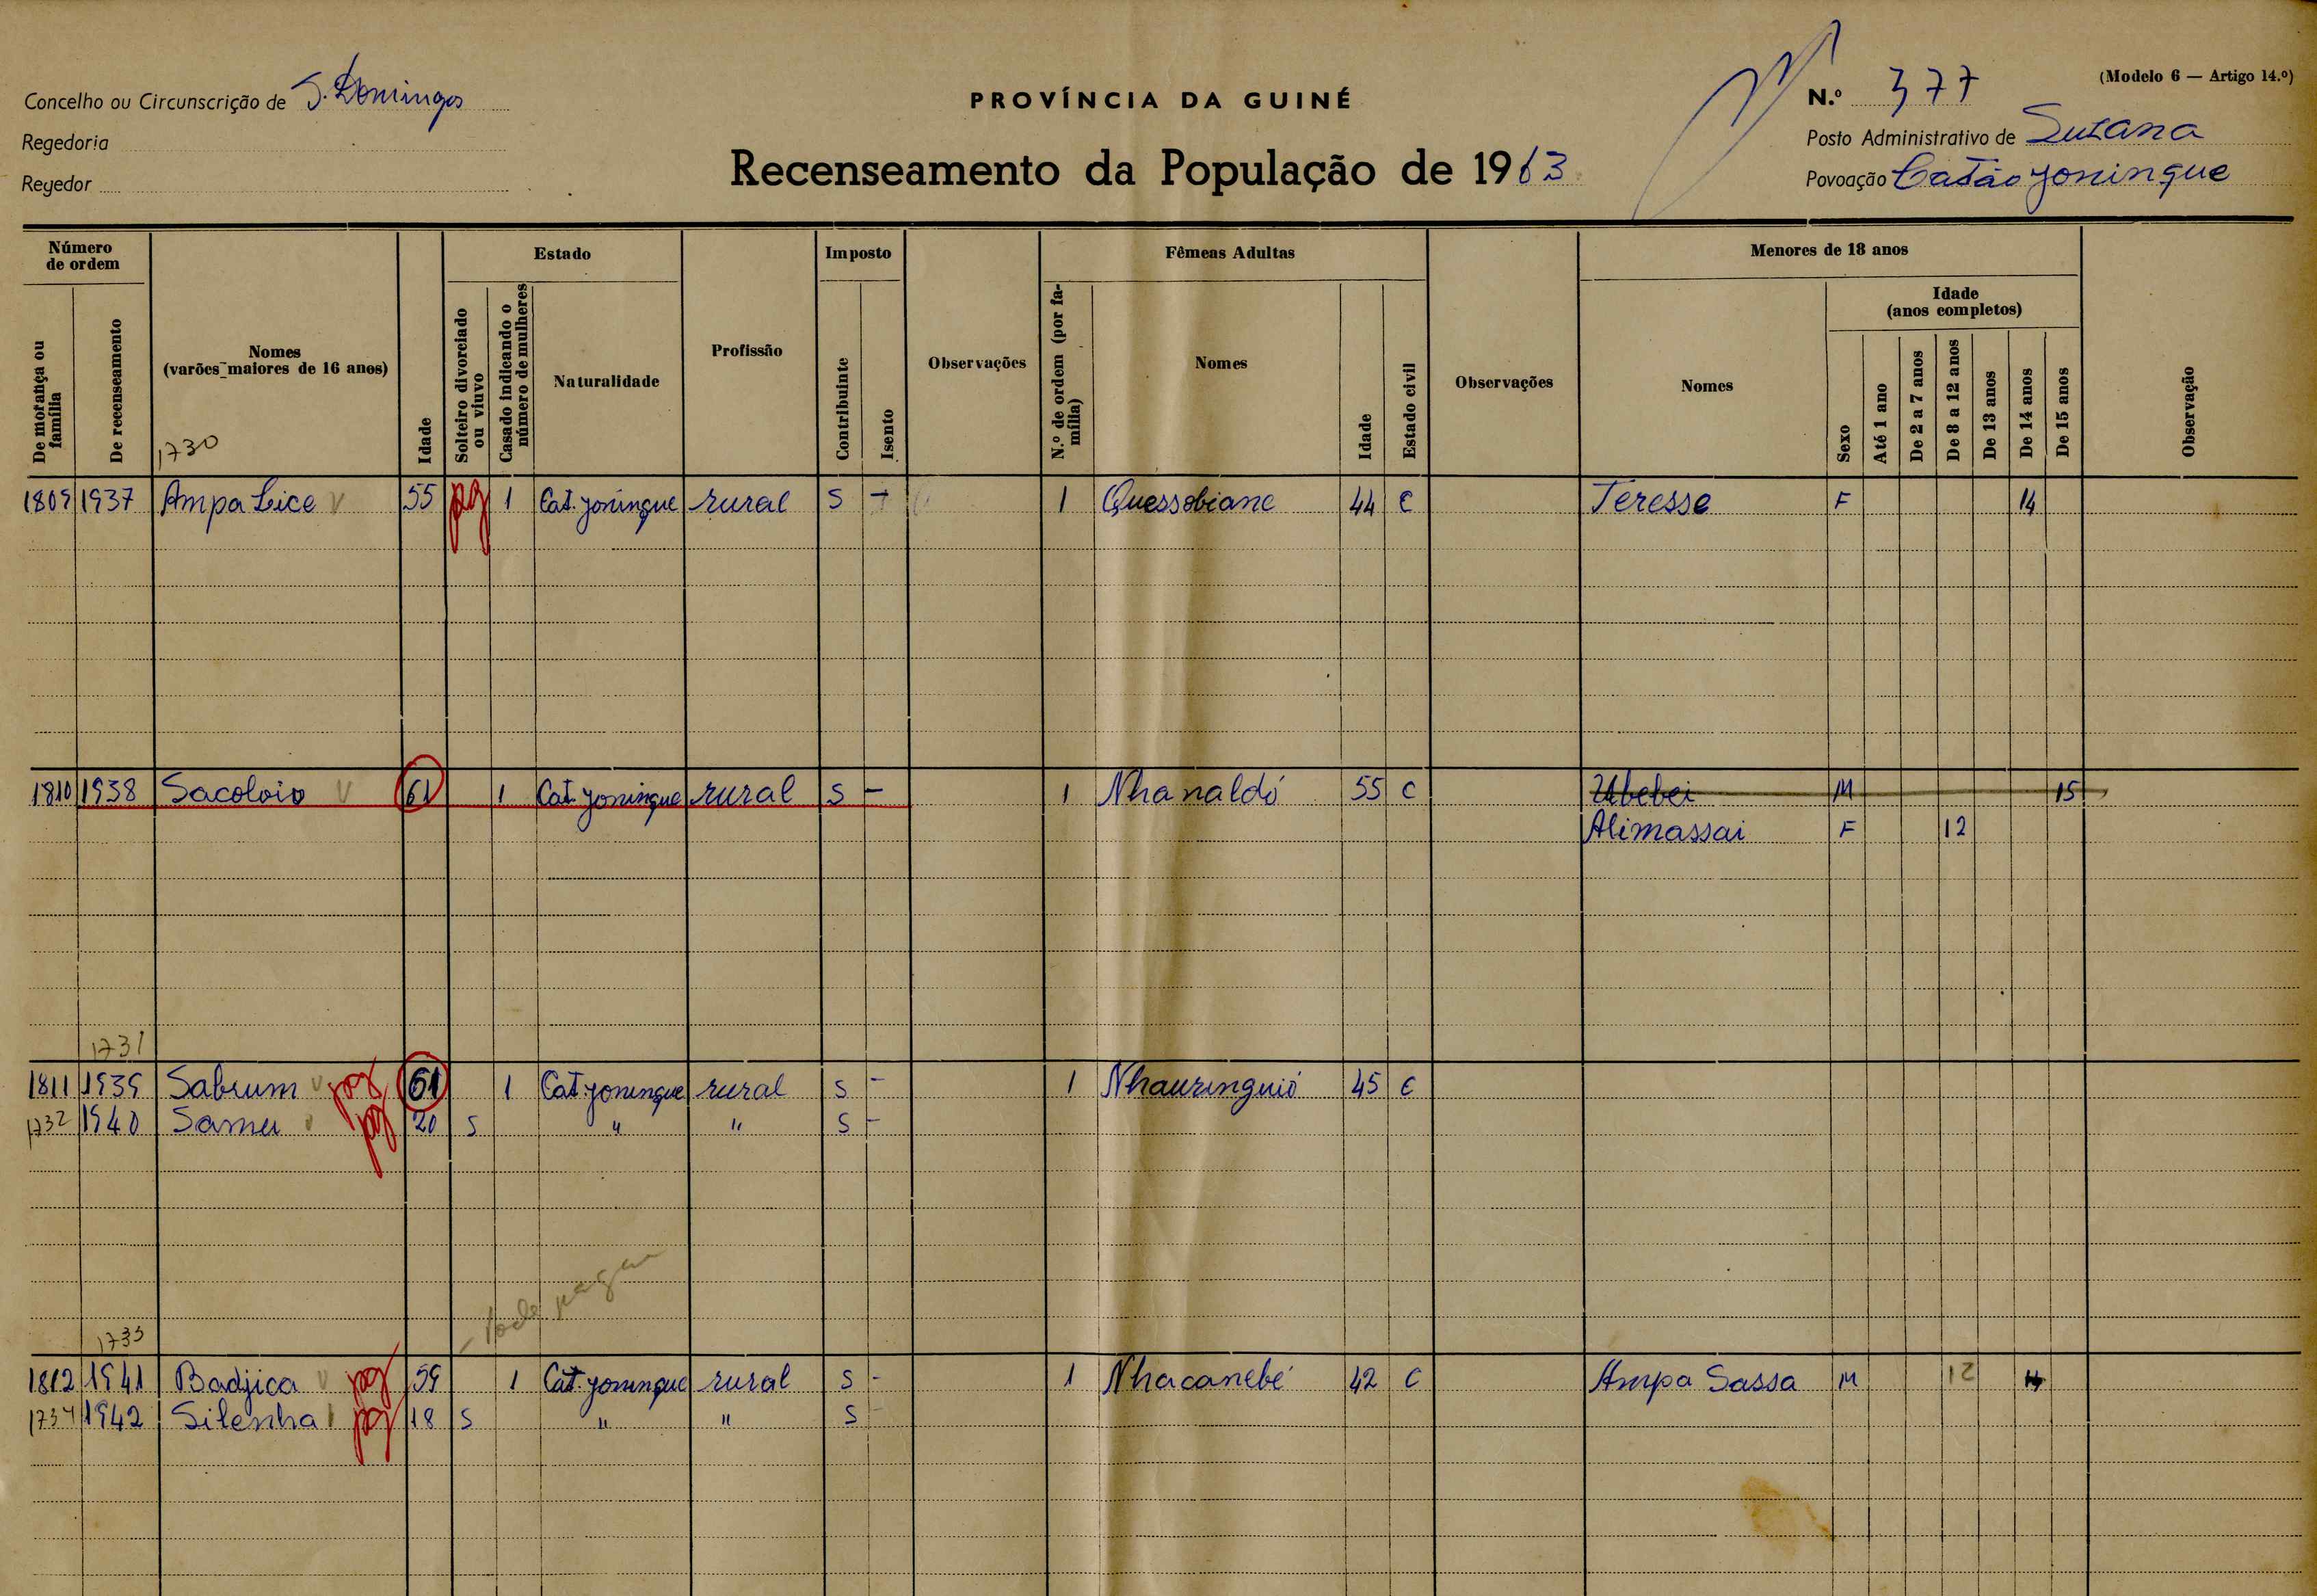 Concelho ou Circunscrição de S. Domingos
Regedoria
Regedor
PROVÍNCIA DA GUINÉ
Recenseamento da População de 1963
(Modelo 6 — Artigo 14.º)
N.º 377
Posto Administrativo de Suzana
Povoação Catão Joningue
Número de ordem
De morança ou família
De recenseamento
Nomes (varões maiores de 16 anos)
1730
Idade
Estado
Solteiro divorciado ou viuvo
Casado indicando o número de mulheres
Naturalidade
Profissão
Imposto
Contribuinte
Isento
Observações
Fêmeas Adultas
N.º de ordem (por família)
Nomes
Idade
Estado civil
Observações
Menores de 18 anos
Nomes
Sexo
Idade (anos completos)
Até 1 ano
De 2 a 7 anos
De 8 a 12 anos
De 13 anos
De 14 anos
De 15 anos
Observação
1809 1937 Ampa Lice V 55 pg 1 Cat. Joningue rural S - 1 Quessobiane 44 C Teresse F 14
1810 1938 Sacoloio V 61 1 Cat. Joningue rural S - 1 Nhanaldó 55 C Ubebei M 15
Alimassai F 12
1731
1811 1939 Sabrum V pg 61 1 Cat. Joningue rural S - 1 Nhauringuió 45 C
1732 1940 Samu V pg 20 S " " S -
Pode pagar
1733
1812 1941 Badjica V pg 59 1 Cat. Joningue rural S - 1 Nhacanebé 42 C Ampa Sassa M 12 14
1734 1942 Silenha pg 18 S " " S -